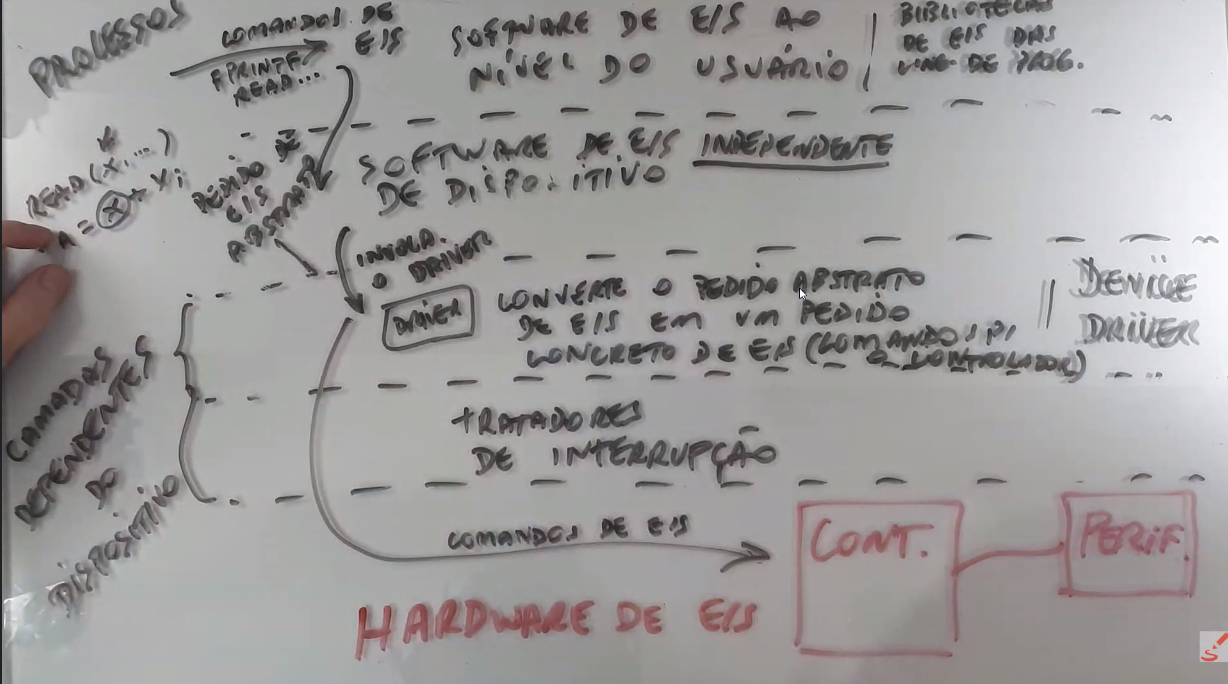 PROCESSOS
COMANDOS DE
E/S
FPRINTF
READ...
SOFTWARE DE E/S AO
NÍVEL DO USUÁRIO
BIBLIOTECAS
DE E/S DAS
LING. DE PROG.
READ(X,...)
= X + Y;
PEDIDO DE
E/S
ABSTRATO
SOFTWARE DE E/S INDEPENDENTE
DE DISPOSITIVO
INVOCA
O DRIVER
DRIVER
CONVERTE O PEDIDO ABSTRATO
DE E/S EM UM PEDIDO
CONCRETO DE E/S (COMANDOS P/
O CONTROLADOR)
DEVICE
DRIVER
CAMADAS
DEPENDENTES
DO
DISPOSITIVO
TRATADORES
DE INTERRUPÇÃO
COMANDOS DE E/S
CONT.
PERIF.
HARDWARE DE E/S